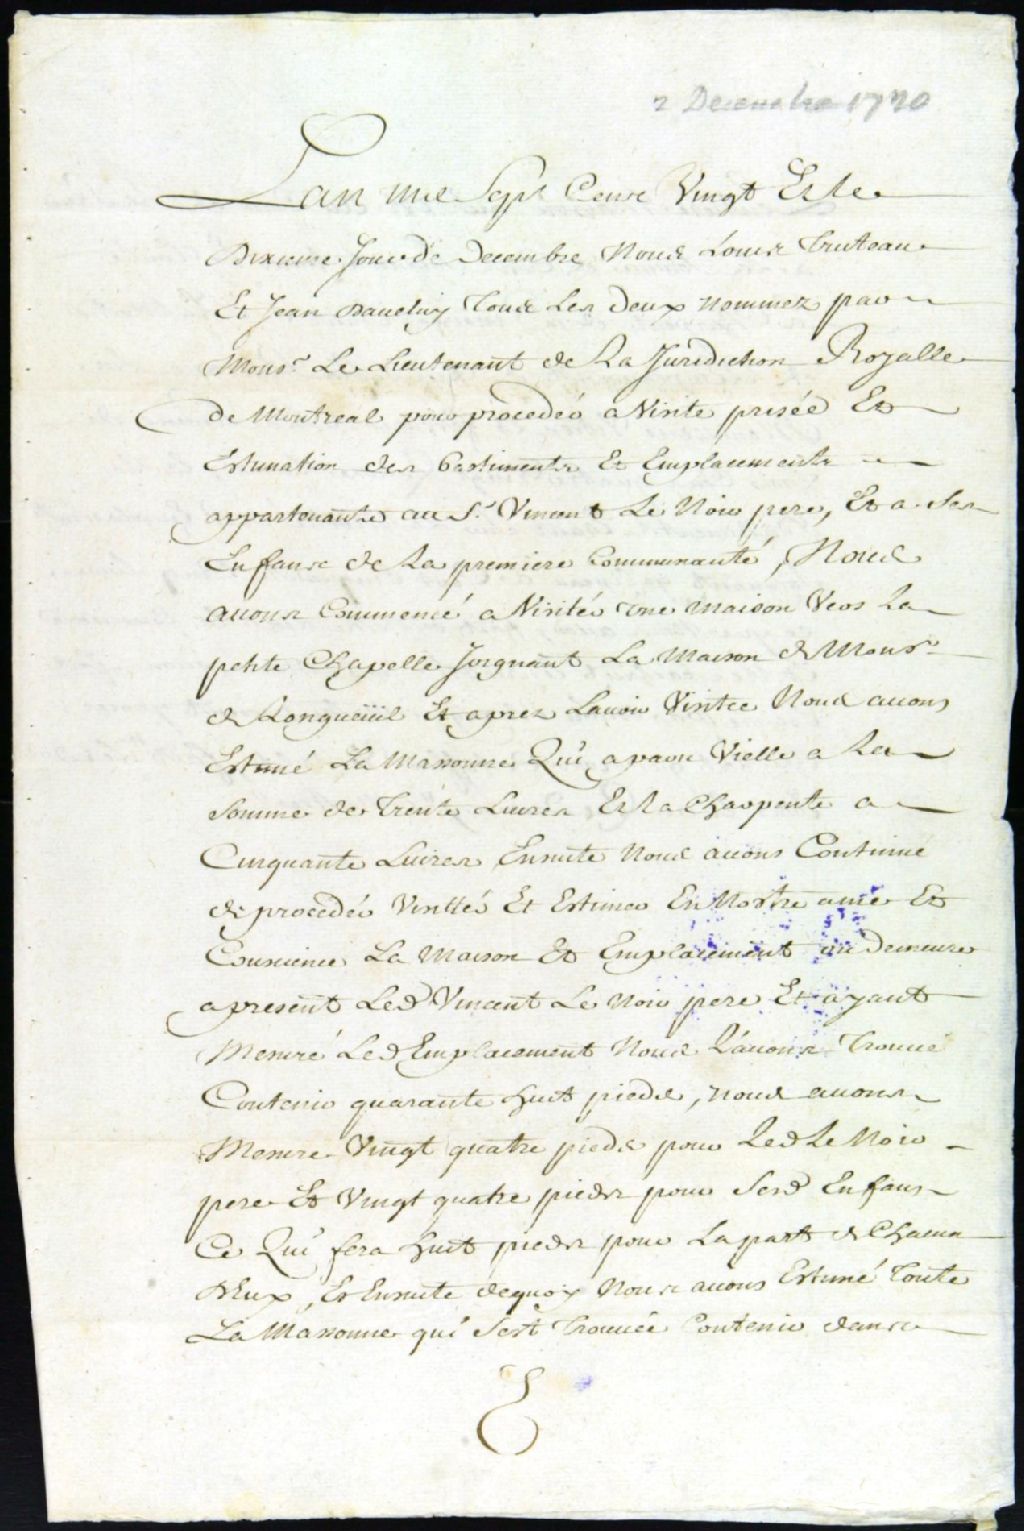 2 Decembre 1720
Lan mil Sept Cens Vingt Et le
Dixieme Jour de Decembre Nous Louis Truteau
Et Jean Baudouy Tous Les deux nommez par
Mons.r Le Lieutenant de La Juridiction Royalle
de Montreal pour proceder a Visite prisée Et
Estimation des bastiments Et Emplacements
appartenants au S.r Vincent Le Noir pere, Et a Ses
Enfans de La premiere Communauté, Nous
auons Commencé a Visiter une maison Vers La
petite Chapelle Joignant La Maison de Mons.r
de Longueüil Et aprez Lauoir Visitee Nous auons
Estimé La Massonne Qui a paru Vielle a La
Somme de Trente Liures Et La Charpente a
Cinquante Liures Ensuite Nous auons Continué
de proceder Visiter Et Estimer En Nostre ame Et
Conscience La Maison Et Emplacement ou demeure
apresent Led Vincent Le Noir pere Et ayant
Mesuré Led Emplacement Nous Lauons Trouué
Contenir quarante huit pieds, nous auons
Mesuré Vingt quatre pieds pour Led Le Noir
pere Et Vingt quatre pieds pour Sesd Enfans
Ce Qui fera huit pieds pour La part de Chacun
Deux, Et Ensuite dequoy Nous auons Estimé Toute
La Massonne qui Sest Trouuée Contenir dans